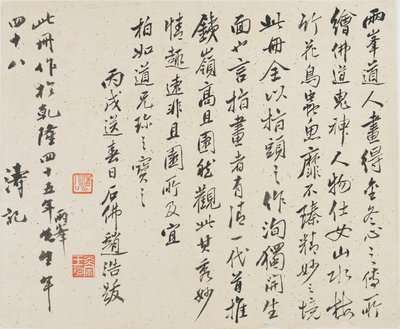 兩峯道人畫得金冬心之傳所
繪佛道鬼神人物仕女山水梅
竹花鳥蟲魚靡不臻精妙之境
此册全以指頭之作洵獨開生
面也言指畫者有清一代首推
鐵嶺高且園然觀此其秀妙
情趣遠非且園所及宜
柏如道兄珎之寶之
丙戌送春日石佛趙浩跋
此册作於乾隆四十五年兩峯先生年
四十八 濤記